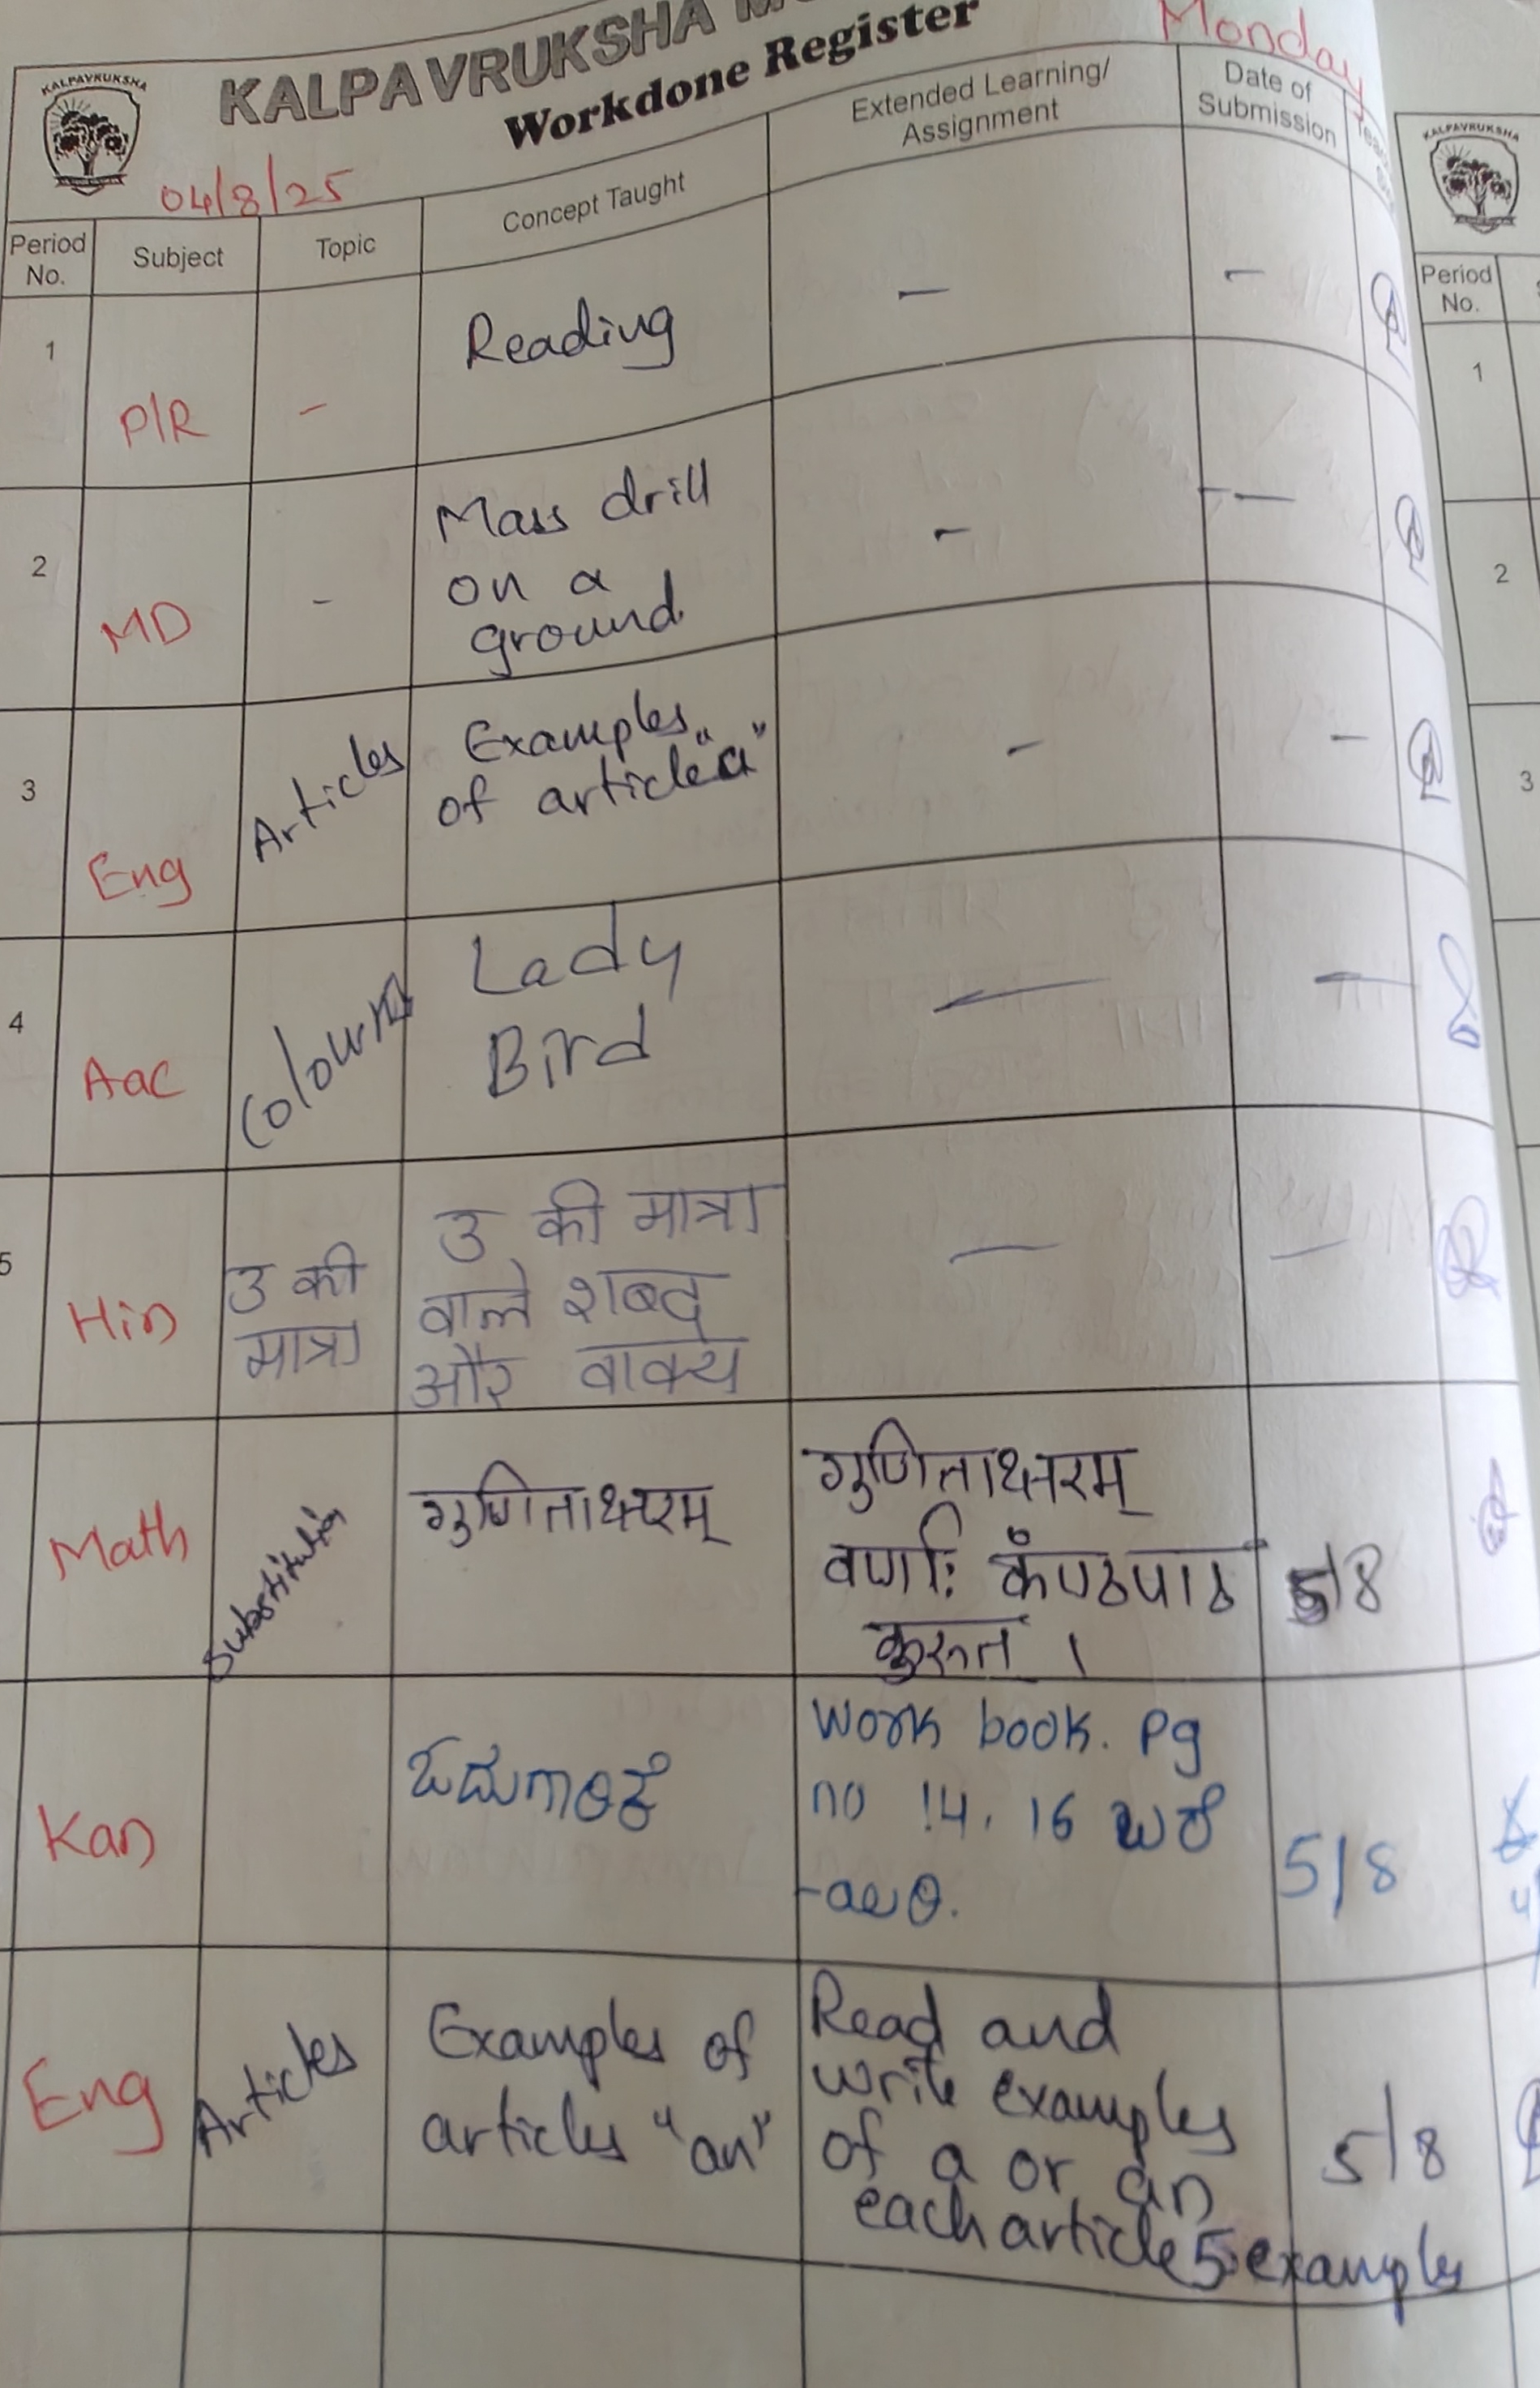 KALPAVRUKSHA
KALPAVRUKSHA
Workdone Register
Monday
04/8/25
Period No.
Subject
Topic
Concept Taught
Extended Learning/
Assignment
Date of
Submission
1
P/R
-
Reading
-
-
2
MD
-
Mass drill
on a
ground.
-
-
3
Eng
Articles
Examples
of article "a"
-
-
4
Aac
Lady
Bird
-
-
5
Hin
उ की
मात्रा
उ की मात्रा
वाले शब्द
और वाक्य
-
-
Math
गुणिताक्षरम्
गुणिताक्षरम्
वर्णाः कंण्ठपाठ
कुरुत ।
5/8
Kan
Work book. Pg
no 14, 16 ಬರೆ
5/8
Eng
Articles
Examples of
articles "an"
Read and
write examples
of a or an
each article 5 examples
5/8
KALPAVRUKSHA
Period
No.
1
2
3